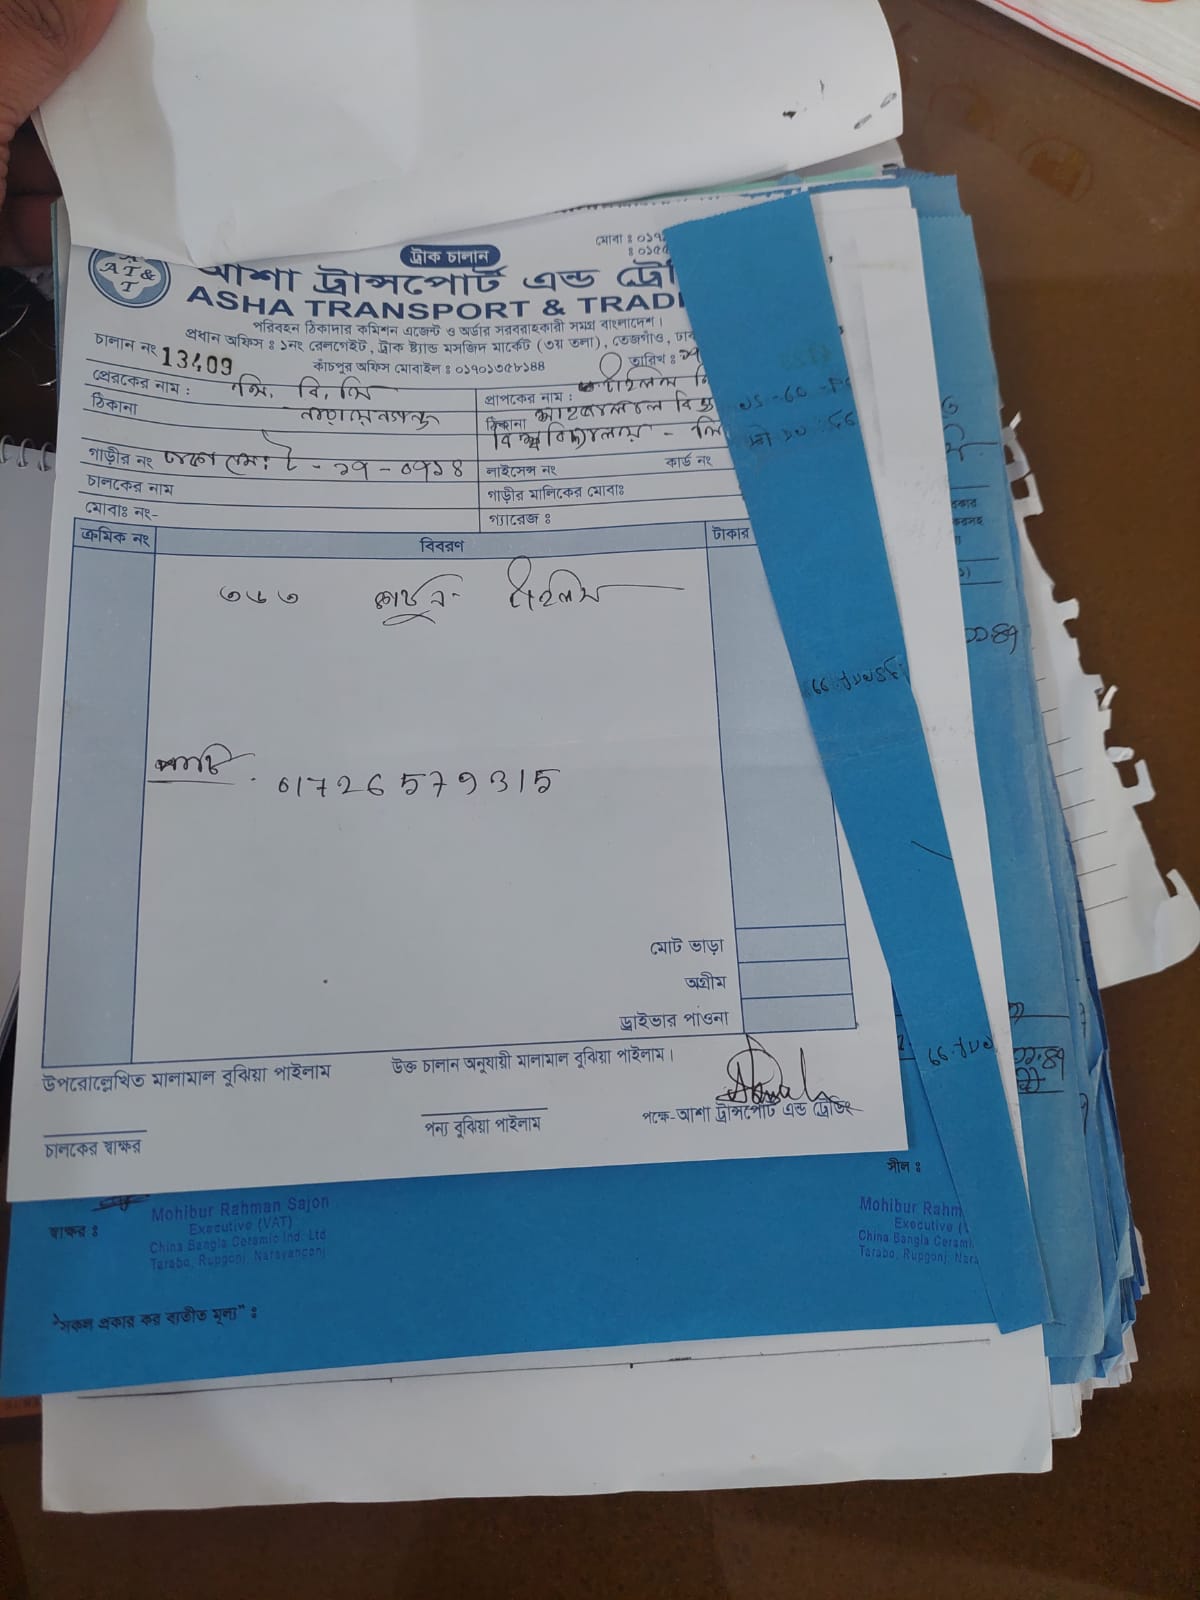 ট্রাক চালান
মোবা : ০১৭
: ০১৫৫
AT&T
আশা ট্রান্সপোর্ট এন্ড ট্রেডি
ASHA TRANSPORT & TRADI
পরিবহন ঠিকাদার কমিশন এজেন্ট ও অর্ডার সরবরাহকারী সমগ্র বাংলাদেশ।
প্রধান অফিস : ১নং রেলগেইট, ট্রাক ষ্ট্যান্ড মসজিদ মার্কেট (৩য় তলা), তেজগাঁও, ঢাকা
চালান নং 13409
কাঁচপুর অফিস মোবাইল : ০১৭০১৩৫৮১৪৪
তারিখ : ২৭
প্রেরকের নাম : সি. বি. সি
প্রাপকের নাম : টাইলস
ঠিকানা নারায়েনগঞ্জ
ঠিকানা শাহজালাল
বিশ্ববিদ্যালয় - সি
গাড়ীর নং ঢাকা মেঃ ট - ২৭ - ০৭১৪
লাইসেন্স নং
কার্ড নং
চালকের নাম
গাড়ীর মালিকের মোবাঃ
মোবাঃ নং-
গ্যারেজ :
ক্রমিক নং
বিবরণ
টাকার
৩৬৩ কার্টুন - টাইলস
পার্টি . 01726579315
মোট ভাড়া
অগ্রীম
ড্রাইভার পাওনা
উপরোল্লেখিত মালামাল বুঝিয়া পাইলাম
উক্ত চালান অনুযায়ী মালামাল বুঝিয়া পাইলাম।
চালকের স্বাক্ষর
পন্য বুঝিয়া পাইলাম
পক্ষে-আশা ট্রান্সপোর্ট এন্ড ট্রেডিং
সীল :
স্বাক্ষর :
Mohibur Rahman Sajon
Executive (VAT)
China Bangla Ceramic Ind. Ltd
Tarabo, Rupgonj, Narayangonj
Mohibur Rahm
Executive (\
China Bangla Cerami
Tarabo, Rupgonj, Nara
"সকল প্রকার কর ব্যতীত মূল্য" :